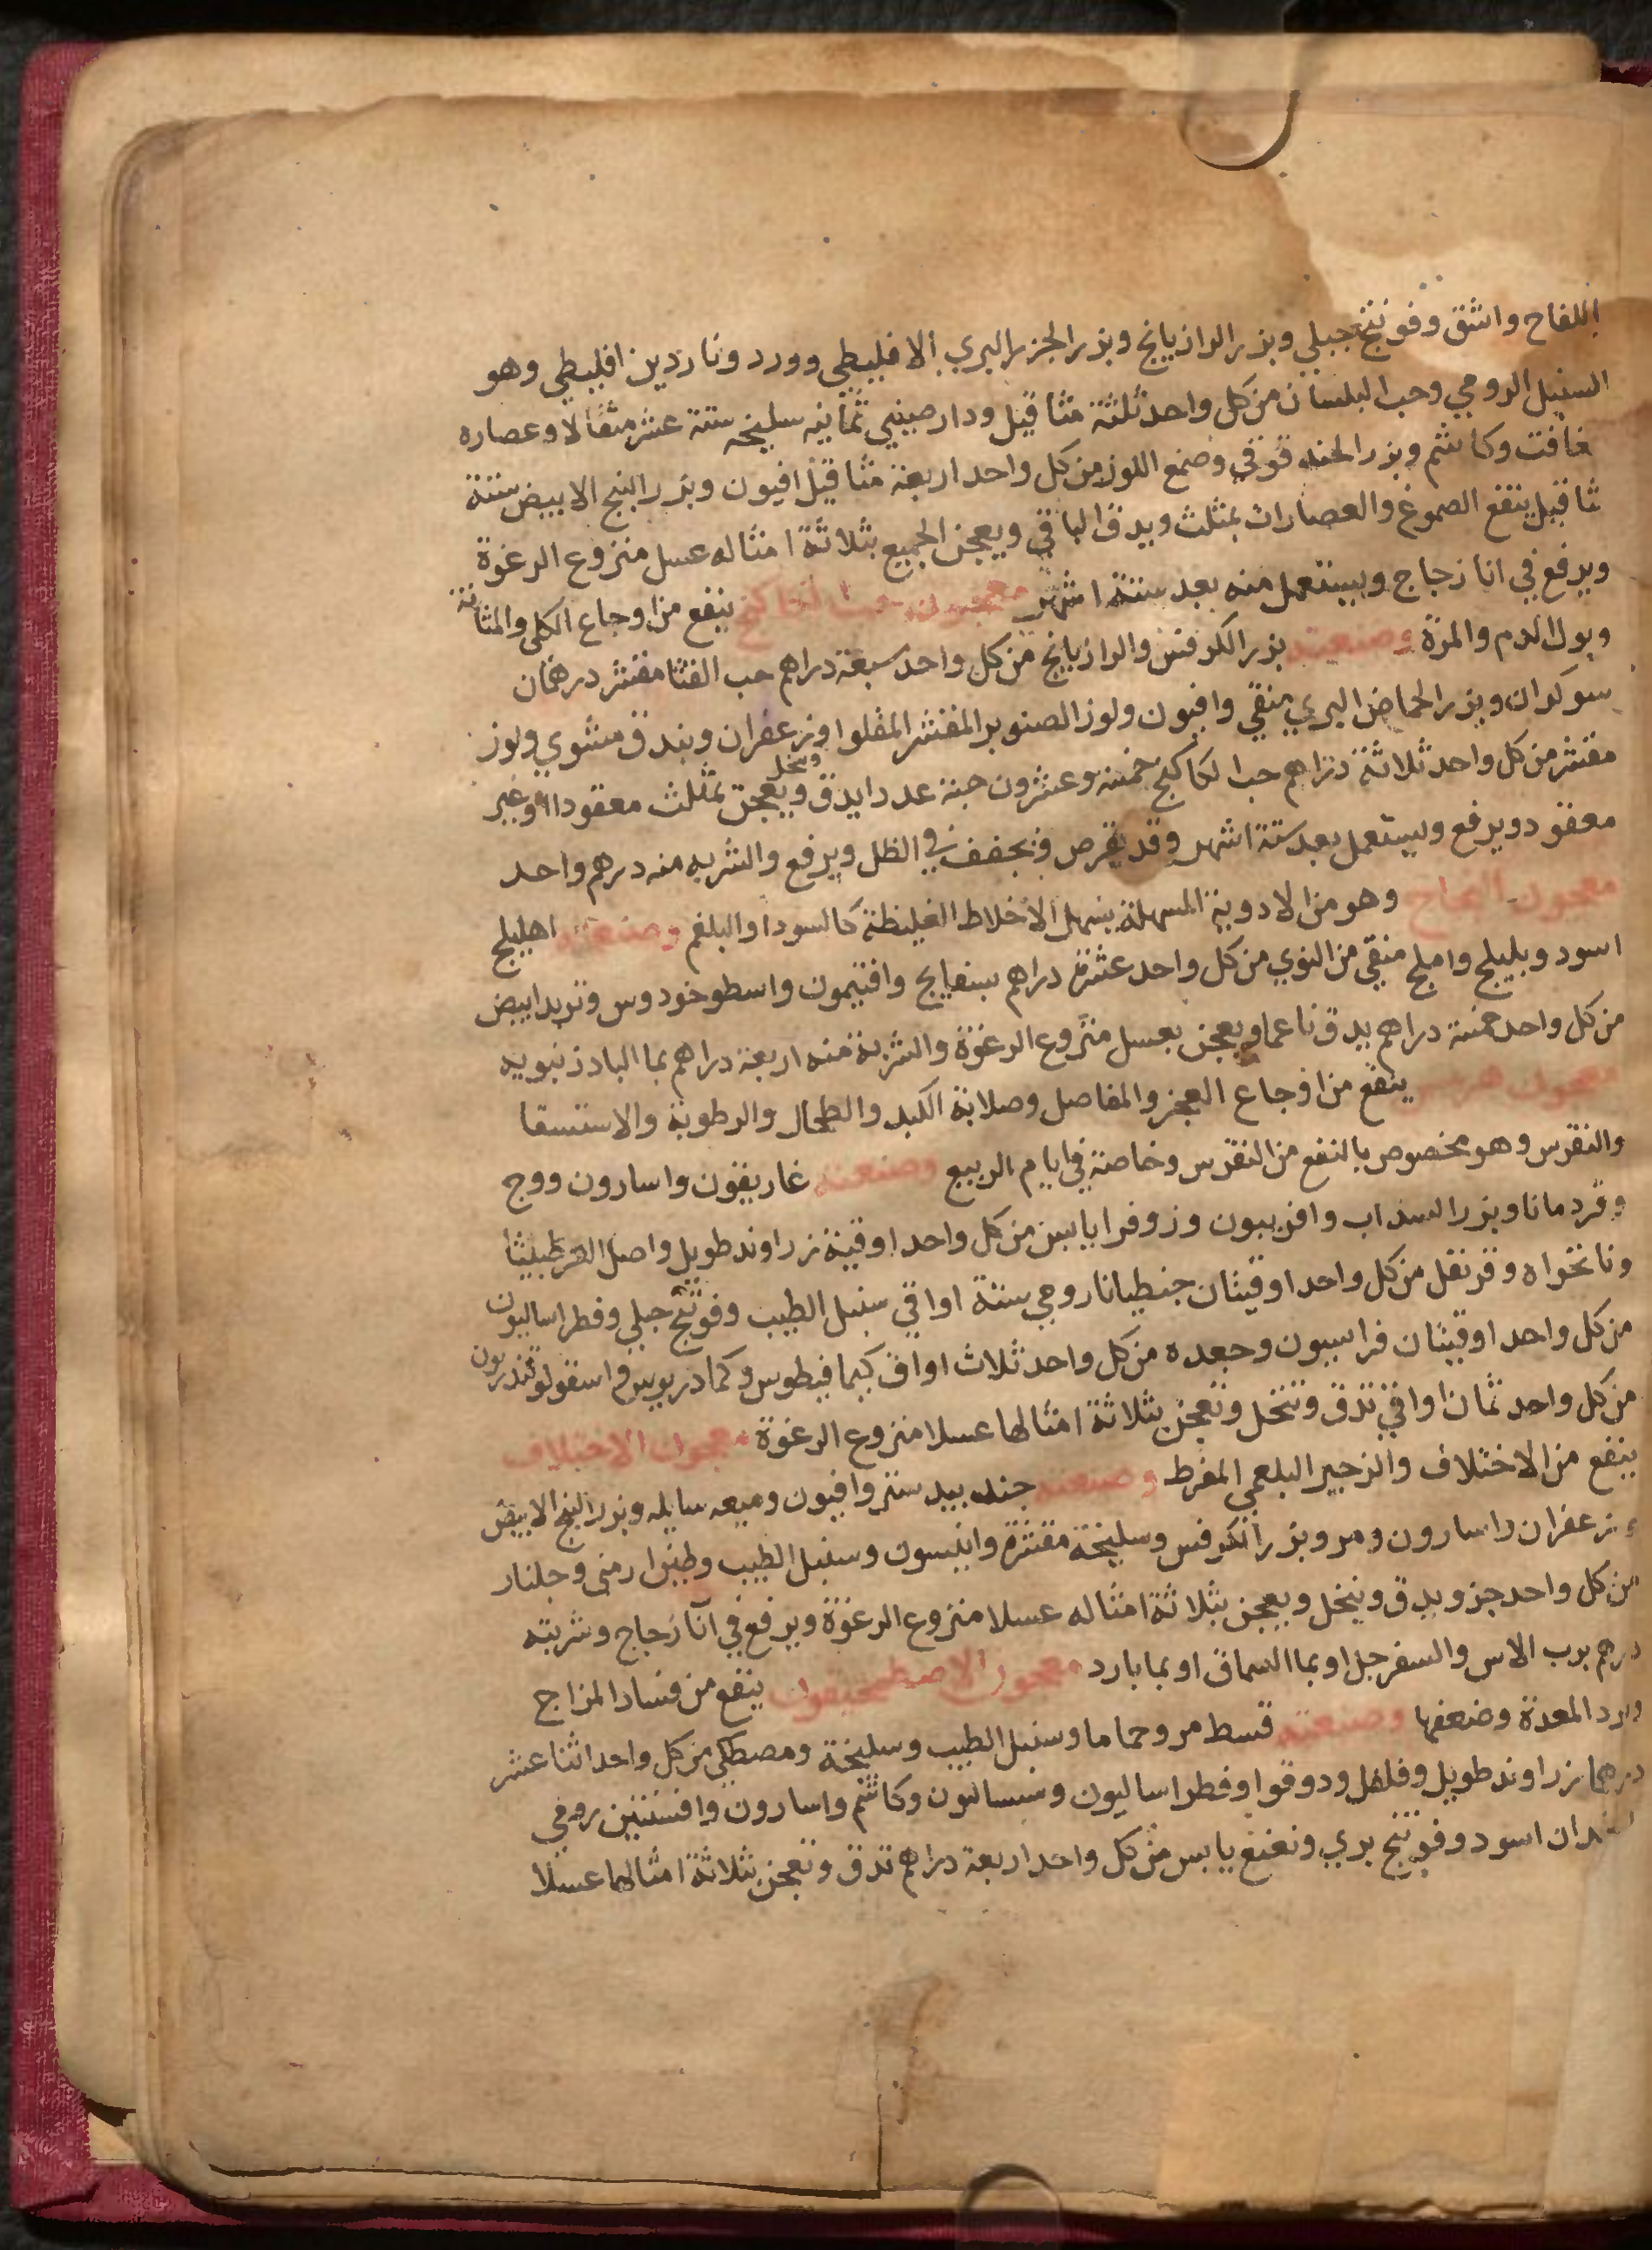 اللفاح واشق وفوتنج جبلي وبزر الرازيانج وبزر الجزر البري الاقليطي وورد وناردين اقليطي وهو
السنبل الرومي وحب البلسان من كل واحد ثلثة مثاقيل ودارصيني ثمانيه سليخه ستة عشر مثقالا وعصاره
غافت وكاشم وبزر الحندقوقي وصمغ اللوز من كل واحد اربعة مثاقيل افيون وبزر البنج الابيض ستة
ثاقيل ينقع الصموغ والعصارات بمثلث ويدق الباقي ويعجن الجميع بثلاثة امثاله عسل منزوع الرغوة
ويرفع في انا زجاج ويستعمل منه بعد ستة اشهر معجون حب الكاكنج ينفع من اوجاع الكلى والمثانة
وبول الدم والمرة وصنعته بزر الكرفس والرازيانج من كل واحد سبعة دراهم حب القثا مقشر درهمان
سوكران وبزر الحماض البري منقي وافيون ولوز الصنوبر المقشر المقلوا وزعفران وبندق مشوي ولوز
مقشر من كل واحد ثلاثة دراهم حب الكاكنج خمسة وعشرون حبة عددا يدق وينخل ويعجن بمثلث معقودا او غير
معقود ويرفع ويستعمل بعد ستة اشهر وقد يقرص ويجفف في الظل ويرفع والشربه منه درهم واحد
معجون النجاح وهو من الادوية المسهلة يسهل الاخلاط الغليظة كالسودا والبلغم وصنعته اهليلج
اسود وبليلج واملج منقي من النوي من كل واحد عشرة دراهم بسفايج وافتيمون واسطوخودوس وتربد ابيض
من كل واحد خمسة دراهم يدق ناعما ويعجن بعسل منزوع الرغوة والشربة منه اربعة دراهم بما الباذرنبويه
معجون هرمس ينفع من اوجاع العجز والمفاصل وصلابة الكبد والطحال والرطوبة والاستسقا
والنقرس وهو مخصوص بالنفع من النقرس وخاصة في ايام الربيع وصنعته غاريقون واسارون ووج
وقردمانا وبزر السداب وافربيون وزوفرا يابس من كل واحد اوقية زراوند طويل واصل القرطبيثا
ونانخواه وقرنفل من كل واحد اوقيتان جنطيانا رومي ستة اواقي سنبل الطيب وفوتنج جبلي وفطراساليون
من كل واحد اوقيتان فراسيون وجعده من كل واحد ثلاث اواق كمافيطوس وكمادريوس واسقولوقندريون
من كل واحد ثمان اواقي تدق وتنخل وتعجن بثلاثة امثالها عسلا منزوع الرغوة معجون الاختلاف
ينفع من الاختلاف والزحير البلغمي المفرط وصنعته جند بيدستر وافيون وميعه سايله وبزر البنج الابيض
وزعفران واسارون ومر وبزر الكرفس وسليخة مقشرة وانيسون وسنبل الطيب وطين ارمني وجلنار
من كل واحد جزو يدق وينخل ويعجن بثلاثة امثاله عسلا منزوع الرغوة ويرفع في آنا زجاج وشربته
درهم برب الاس والسفرجل او بما السماق او بما بارد معجون الاصطمخيقون ينفع من فساد المزاج
وبرد المعدة وضعفها وصنعته قسط مر وحماما وسنبل الطيب وسليخة ومصطكي من كل واحد اثنا عشر
درهما زراوند طويل وفلفل ودوقوا وفطراساليون وسساليون وكاشم واسارون وافسنتين رومي
اسود وفوتنج بري ونعنع يابس من كل واحد اربعة دراهم تدق وتعجن بثلاثة امثالها عسلا